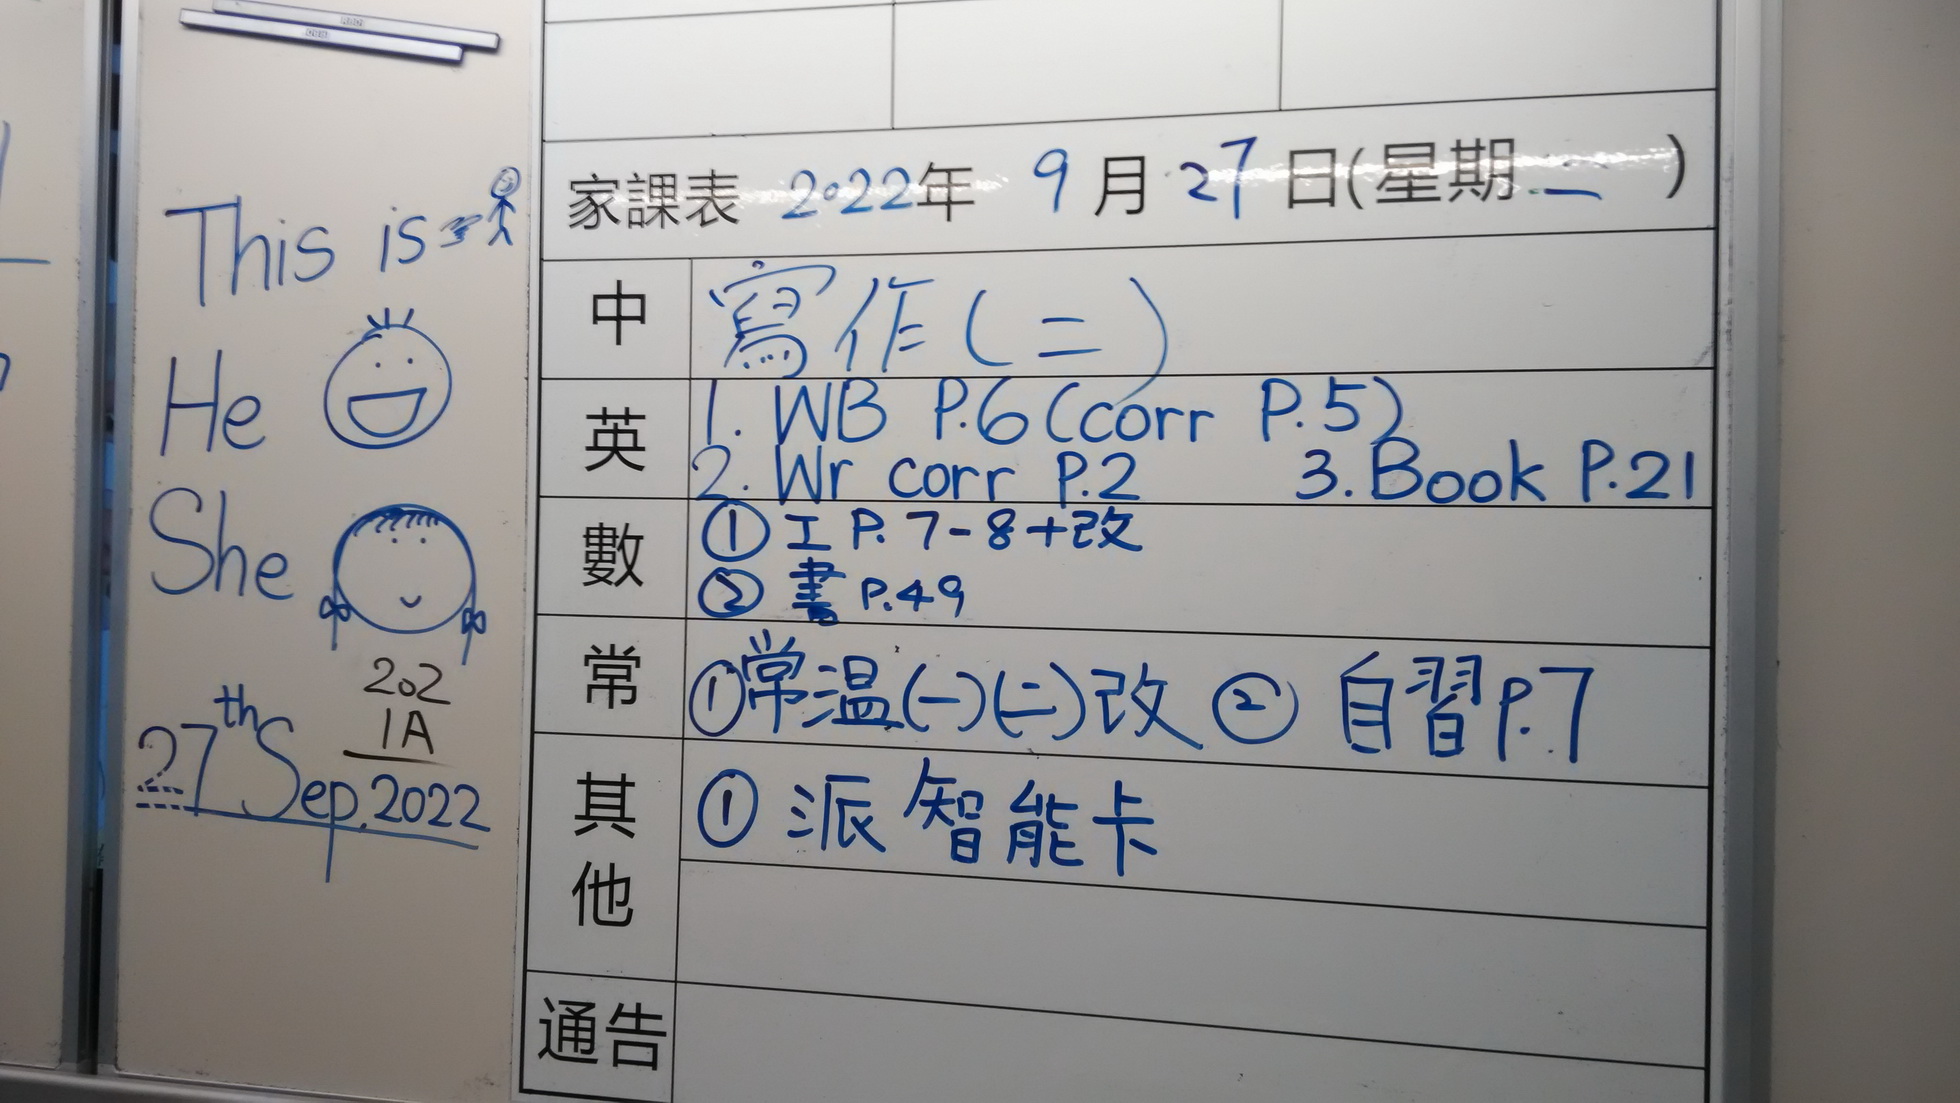 This is
He
She
202
1A
27th Sep. 2022
家課表 2022年 9月27日(星期二)
中 寫作(二)
英 1. WB P.6 (corr P.5)
2. Wr corr P.2 3. Book P.21
數 ① 工 P. 7-8+改
② 書 P.49
常 ①常温(一)(二)改 ② 自習 P.7
其他 ① 派智能卡
通告